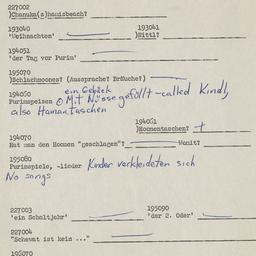 227002
)Chanuka(s)hausbesch?
193040 193041
'Weihnachten' )Nittl?
194051
'der Tag vor Purim'
195070
)Schlachmones? (Aussprache? Bräuche?)
194060 ein Gebäck
Purimspeisen Mit Nüsse gefüllt - called Kindly,
also Hamantaschen
194061
)Homentaschen? +
194070
Hat man den Homen "geschlagen"? Womit?
195080
Purimspiele, -lieder Kinder verkleideten sich
No songs
227003 195090
'ein Schaltjahr' 'der 2. Oder'
227004
"Schewat ist kein ..."
196070